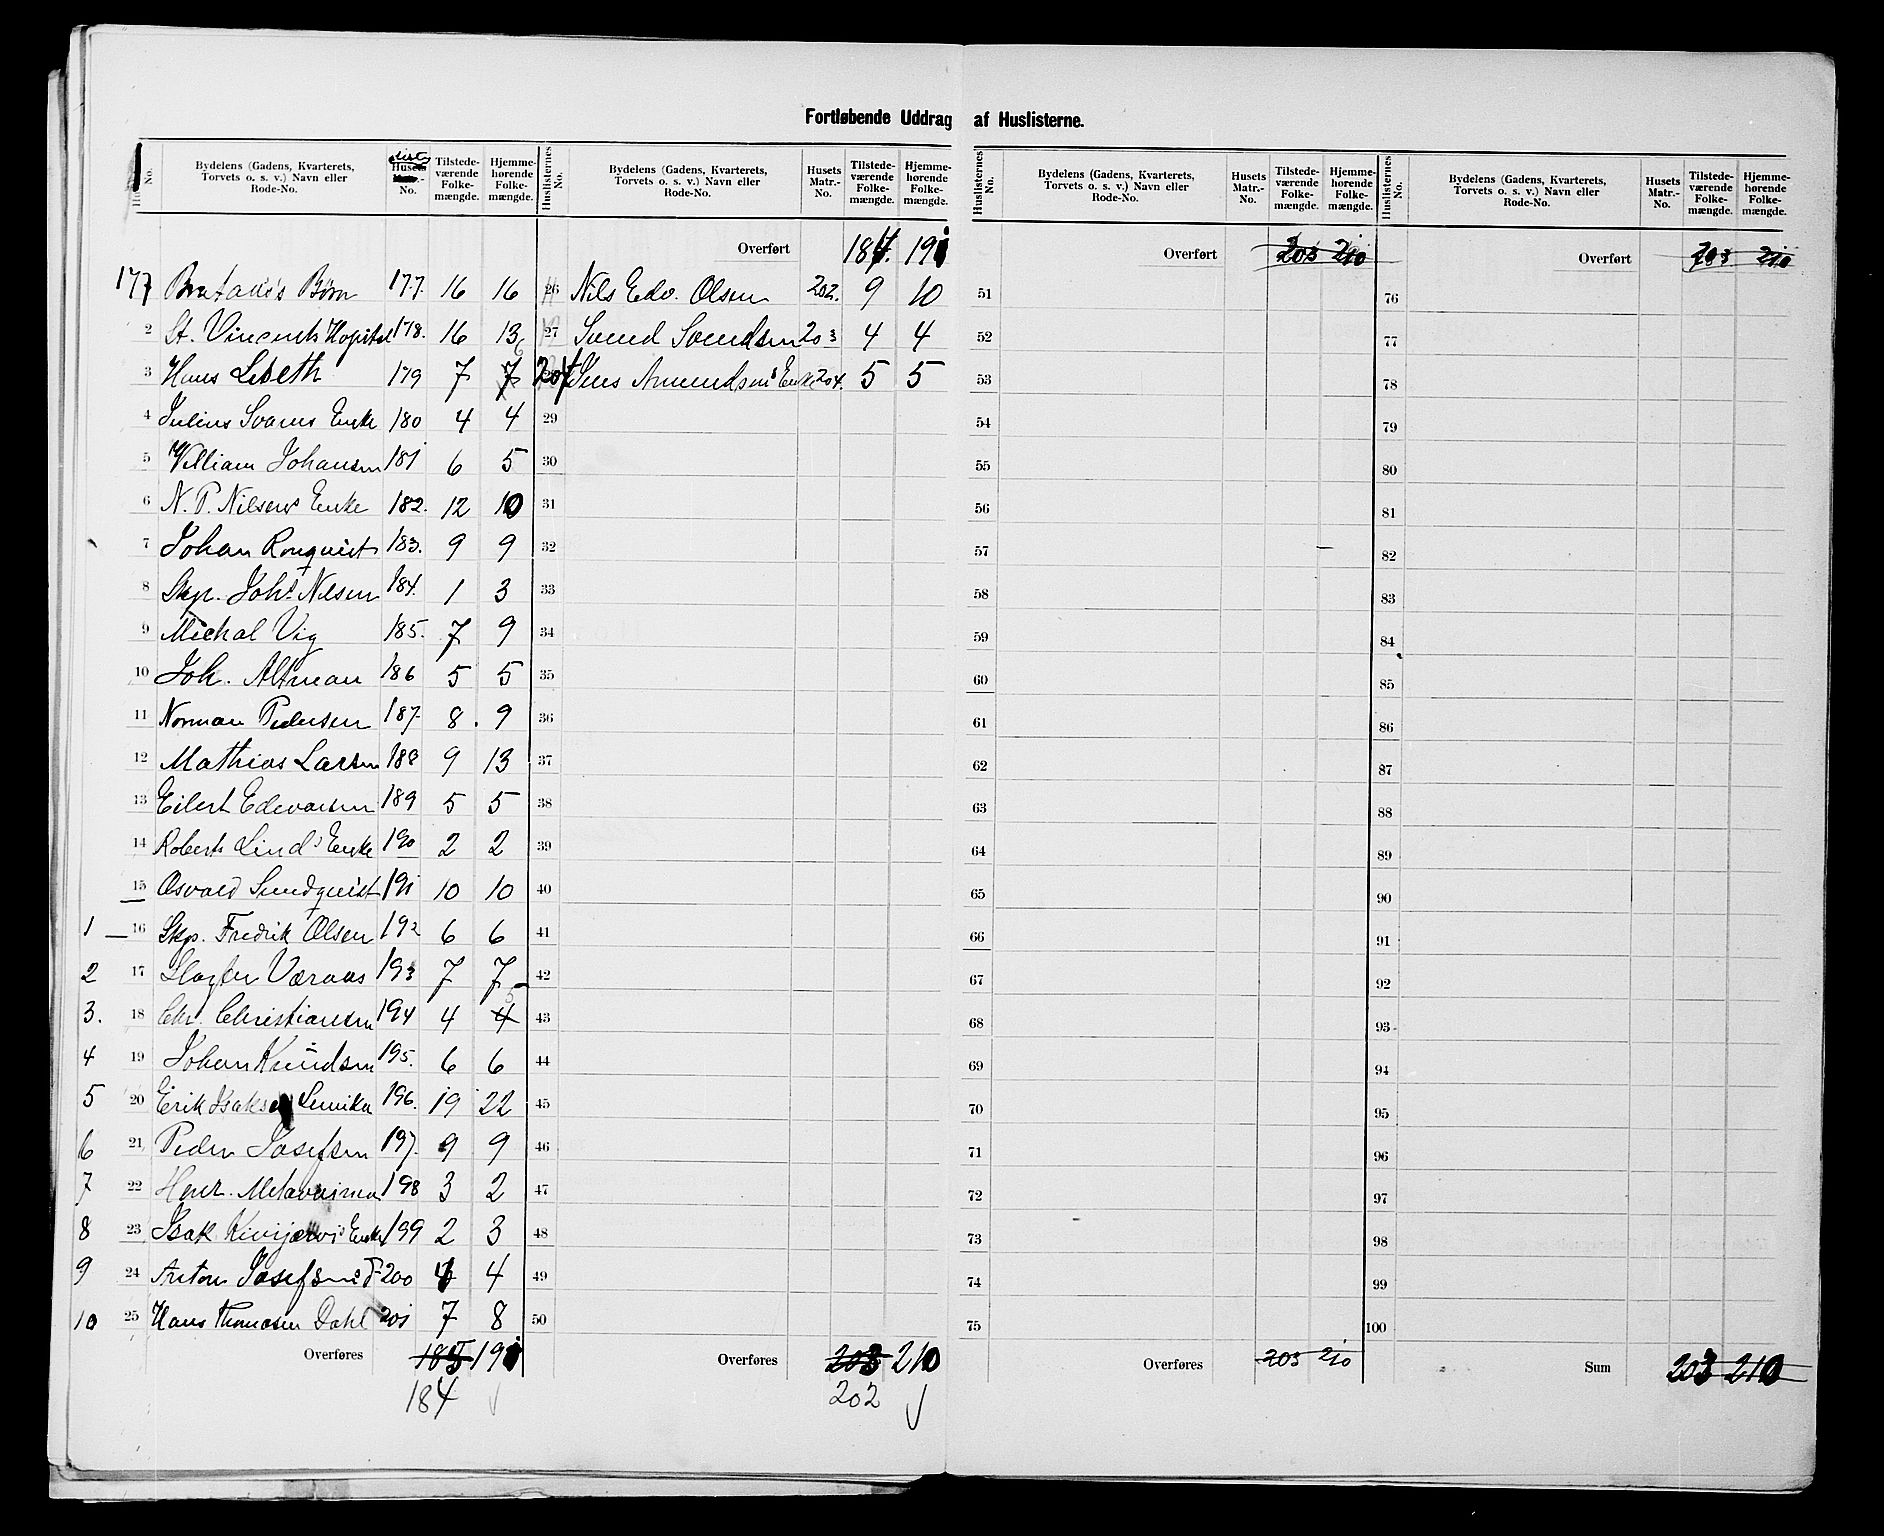 Fortløbende Uddrag af Huslisterne.
No. Bydelens (Gadens, Kvarterets, Torvets o. s. v.) Navn eller Rode-No. Liste Husets No. Tilstedeværende Folkemængde. Hjemmehørende Folkemængde.
Huslisternes No. Bydelens (Gadens, Kvarterets, Torvets o. s. v.) Navn eller Rode-No. Husets Matr.-No. Tilstedeværende Folkemængde. Hjemmehørende Folkemængde.
Huslisternes No. Bydelens (Gadens, Kvarterets, Torvets o. s. v.) Navn eller Rode-No. Husets Matr.-No. Tilstedeværende Folkemængde. Hjemmehørende Folkemængde.
Huslisternes No. Bydelens (Gadens, Kvarterets, Torvets o. s. v.) Navn eller Rode-No. Husets Matr.-No. Tilstedeværende Folkemængde. Hjemmehørende Folkemængde.
177 Børn 177. 16 16
2 St. Vincents Hospital 178. 16 13
6
3 Hans Liseth 179 7 7
4 Julius Svanes Enke 180 4 4
5 William Johansen 181 6 5
6 N. P. Nilsens Enke 182. 12 10
7 Johan Ronquist 183. 9 9
8 Skp. Johs Nilsen 184. 1 3
9 Michal Vig 185. 7 9
10 Joh. Altman 186 5 5
11 Norman Pedersen 187. 8. 9
12 Mathias Larsen 188 9 13
13 Eilert Edevarsen 189 5 5
14 Roberts Lind's Enke 190 2 2
15 Osvald Sundquist 191 10 10
1 16 Skp. Fredrik Olsen 192 6 6
2 17 Slagter Væraas 193 7 7
5
3. 18 Chr. Christiansen 194 4 4
4 19 Johan Knudsen 195. 6 6
5 20 Erik Isaksen 196. 19 22
6 21 Peder Josefsen 197. 9 9
7 22 Henr. 198 3 2
8 23 Isak Kivijærvis Enke 199 2 3
9 24 Anton Josefsens 200 4 4
10 25 Hans Thomasen Dahl 201 7 8
Overføres 185 191
184
Overført 184. 191
26 Nils Edv. Olsen 202. 9 10
27 Svend Svendsen 203 4 4
204 Jens Amundsens Enke 204. 5 5
29
30
31
32
33
34
35
36
37
38
39
40
41
42
43
44
45
46
47
48
49
50
Overføres 203 210
202
Overført 203 210
51
52
53
54
55
56
57
58
59
60
61
62
63
64
65
66
67
68
69
70
71
72
73
74
75
Overføres 203 210
Overført 203 210
76
77
78
79
80
81
82
83
84
85
86
87
88
89
90
91
92
93
94
95
96
97
98
99
100
Sum 203 210